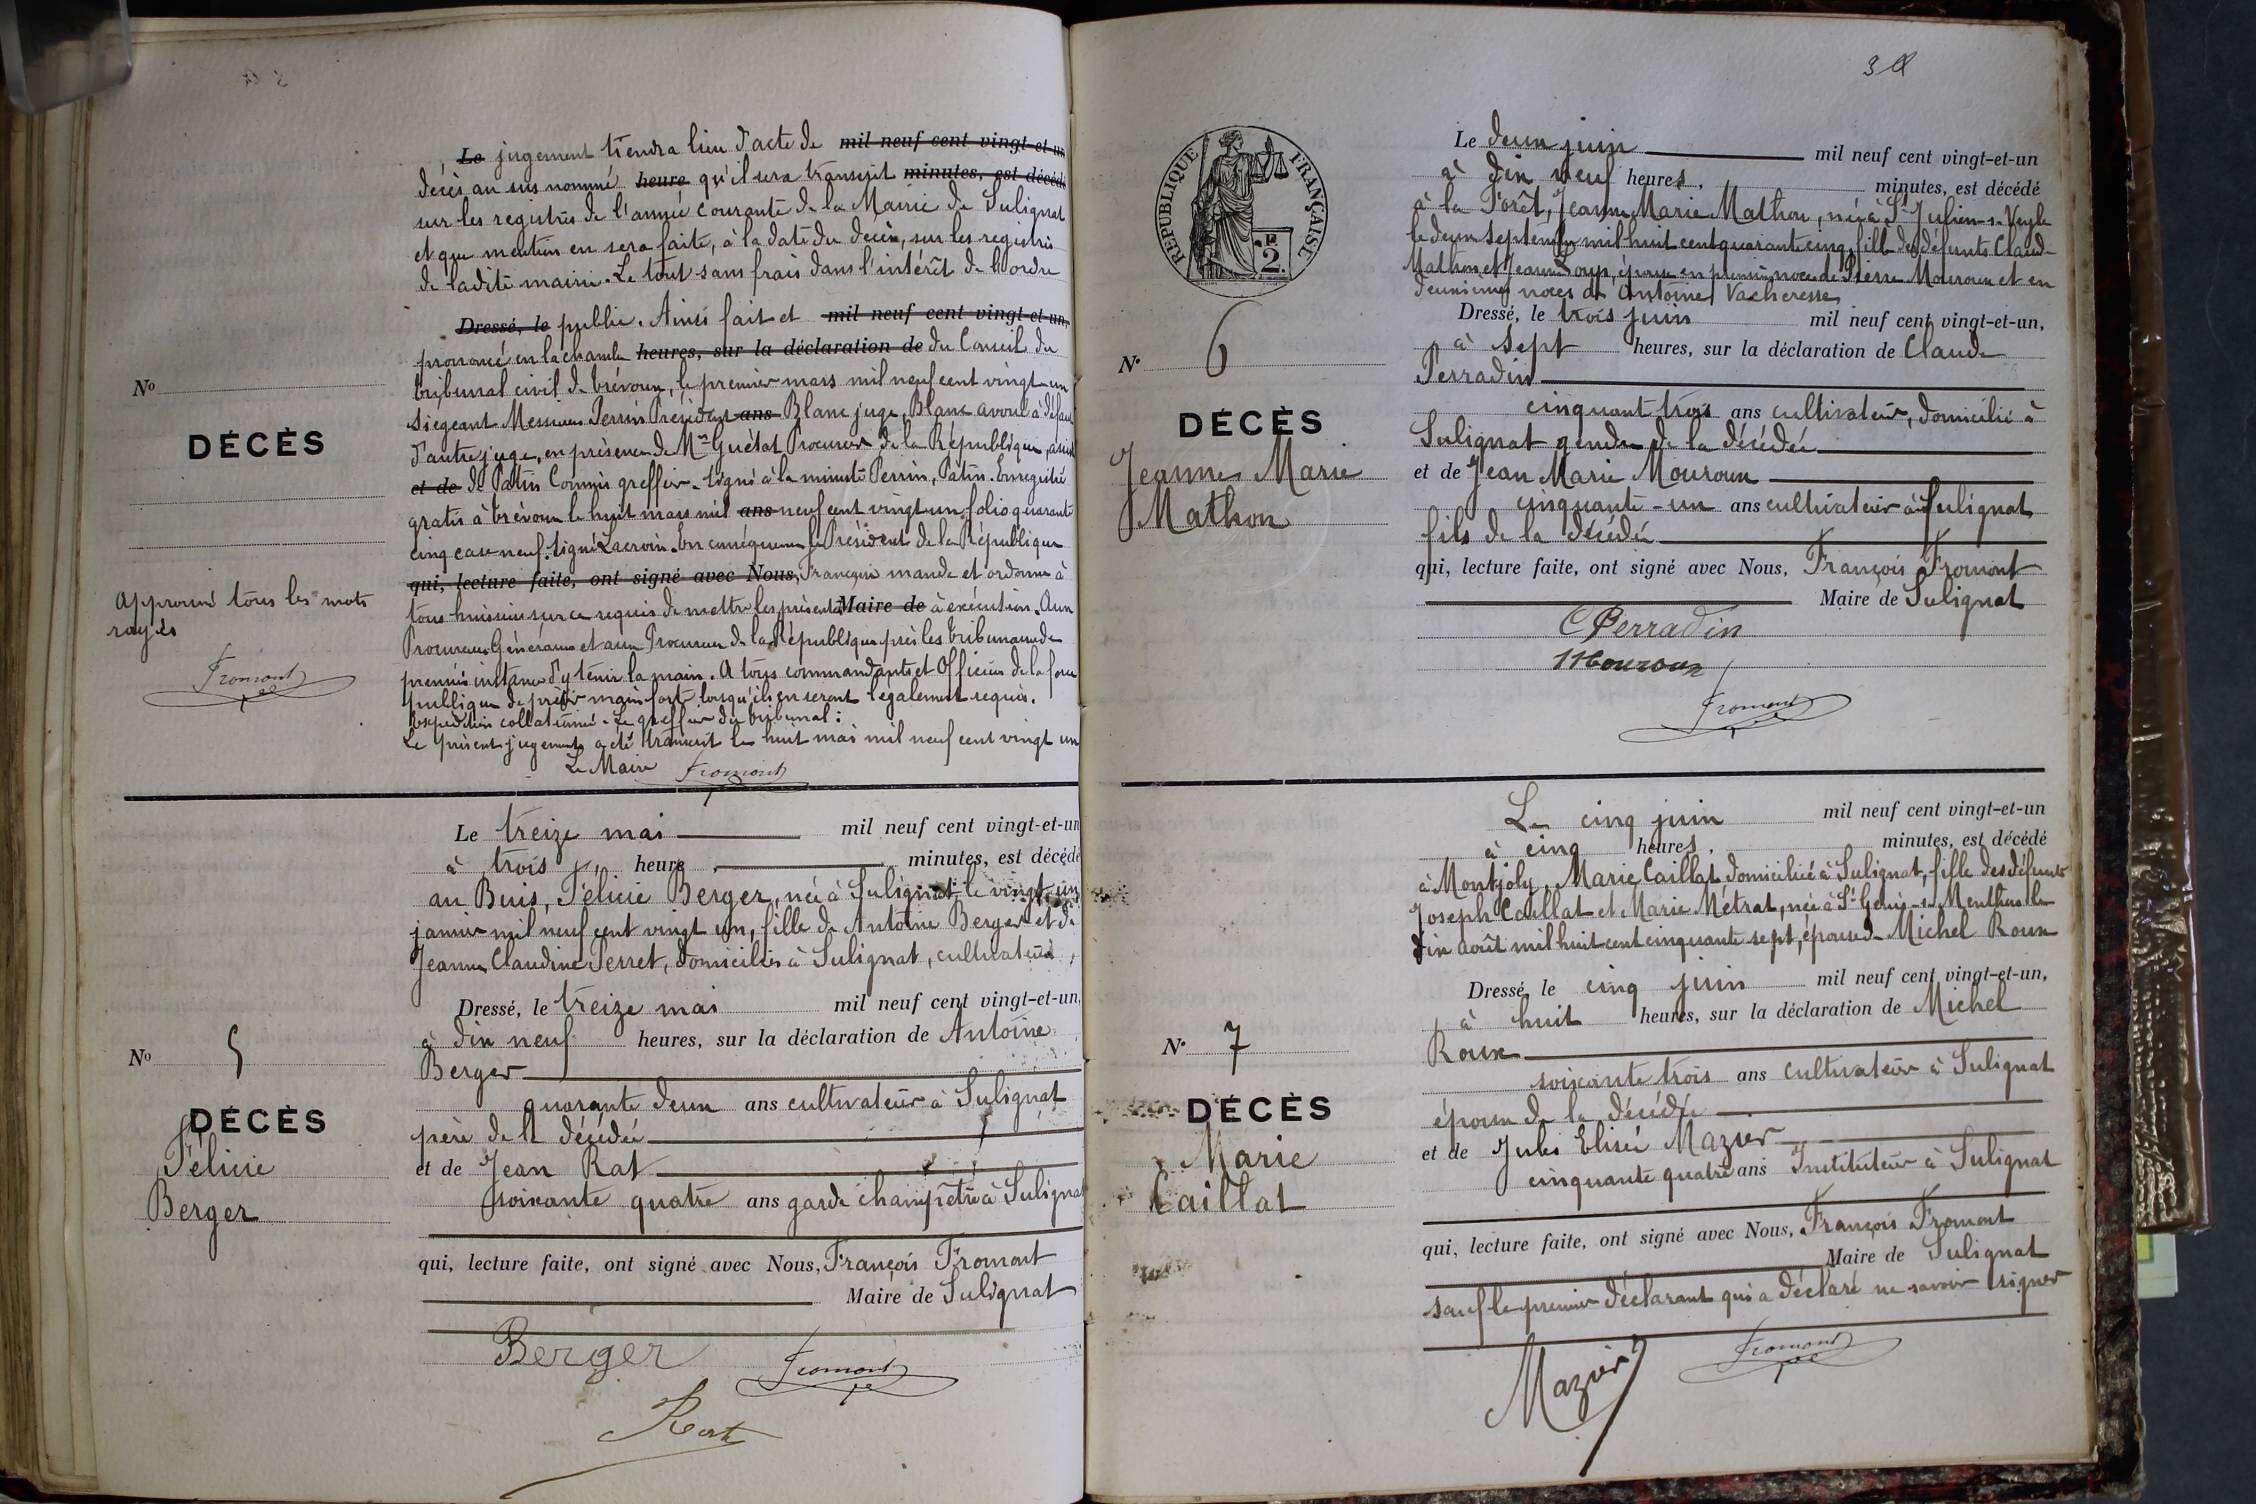 Le jugement tiendra lieu d'acte de mil neuf cent vingt-et-un
décès au sus nommé heure qu'il sera transcrit minutes, est décédé
sur les registres de l'année courante de la Mairie de Sulignat
et que mention en sera faite, à la date du décès, sur les registres
de ladite mairie. Le tout sans frais dans l'intérêt de l'ordre
Dressé, le public. Ainsi fait et mil neuf cent vingt-et-un,
prononcé en la chambre heures, sur la déclaration de du Conseil du
No
tribunal civil de Trévoux, le premier mars mil neuf cent vingt-un
siégeant Messieurs Perrin Président ans Blanc juge, Blanc avoué à défaut
DÉCÈS
d'autre juge, en présence de Mr Guétat Procureur de la République, assisté
et de de Patin Commis greffier. Signé à la minute Perrin, Patin. Enregistré
gratis à Trévoux le huit mars mil ans neuf cent vingt un, folio quarante
cinq case neuf. Signé Lacroix. En conséquence le Président de la République
qui, lecture faite, ont signé avec Nous, Française mande et ordonne à
Approuvé tous les mots
rayés
tous huissiers sur ce requis de mettre les présentes Maire de à exécution. Aux
Procureurs Généraux et aux Procureurs de la République près les tribunaux de
Fromont
première instance d'y tenir la main. A tous commandants et Officiers de la force
publique de prêter main forte lorsqu'ils en seront légalement requis.
Expédition collationnée. Le greffier du tribunal :
Le présent jugement a été transcrit le huit mai mil neuf cent vingt un
Le Maire Fromont
Le treize mai mil neuf cent vingt-et-un
à trois heure , minutes, est décédé
au Buis, Félicie Berger, née à Sulignat le vingt un
janvier mil neuf cent vingt un, fille de Antoine Berger et de
Jeanne Claudine Perret, domiciliés à Sulignat, cultivateurs,
Dressé, le treize mai mil neuf cent vingt-et-un,
à dix neuf heures, sur la déclaration de Antoine
No 5
Berger
quarante deux ans cultivateur à Sulignat
DÉCÈS
Félicie
Berger
père de la décédée
et de Jean Rat
soixante quatre ans garde champêtre à Sulignat
qui, lecture faite, ont signé avec Nous, François Fromont
Maire de Sulignat
Berger Fromont
Rat
3
RÉPUBLIQUE FRANÇAISE
2
Le deux juin mil neuf cent vingt-et-un
à dix neuf heures, minutes, est décédé
à la Forêt, Jeanne Marie Mathon, née à St Julien-s-Veyle
le deux septembre mil huit cent quarante cinq, fille des défunts Claude
Mathon et Jeanne Loup, épouse en premières noces de Pierre Mouroux et en
deuxièmes noces de Antoine Vacheresse
Dressé, le trois juin mil neuf cent vingt-et-un,
No 6
à sept heures, sur la déclaration de Claude
Perradin
DÉCÈS
Jeanne Marie
Mathon
cinquante trois ans cultivateur, domicilié à
Sulignat gendre de la décédée
et de Jean Marie Mouroux
cinquante-un ans cultivateur à Sulignat
fils de la décédée
qui, lecture faite, ont signé avec Nous, François Fromont
Maire de Sulignat
C Perradin
Mouroux
Fromont
Le cinq juin mil neuf cent vingt-et-un
à cinq heures, minutes, est décédé
à Montjoly, Marie Caillat domiciliée à Sulignat, fille des défunts
Joseph Caillat et Marie Métrat, née à St Genis-s-Menthon le
dix août mil huit cent cinquante sept, épouse de Michel Roux
Dressé, le cinq juin mil neuf cent vingt-et-un,
à huit heures, sur la déclaration de Michel
No 7
Roux
soixante trois ans cultivateur à Sulignat
DÉCÈS
Marie
Caillat
époux de la décédée
et de Jules Elisée Mazuer
cinquante quatre ans Instituteur à Sulignat
qui, lecture faite, ont signé avec Nous, François Fromont
Maire de Sulignat
sauf le premier déclarant qui a déclaré ne savoir signer
Fromont